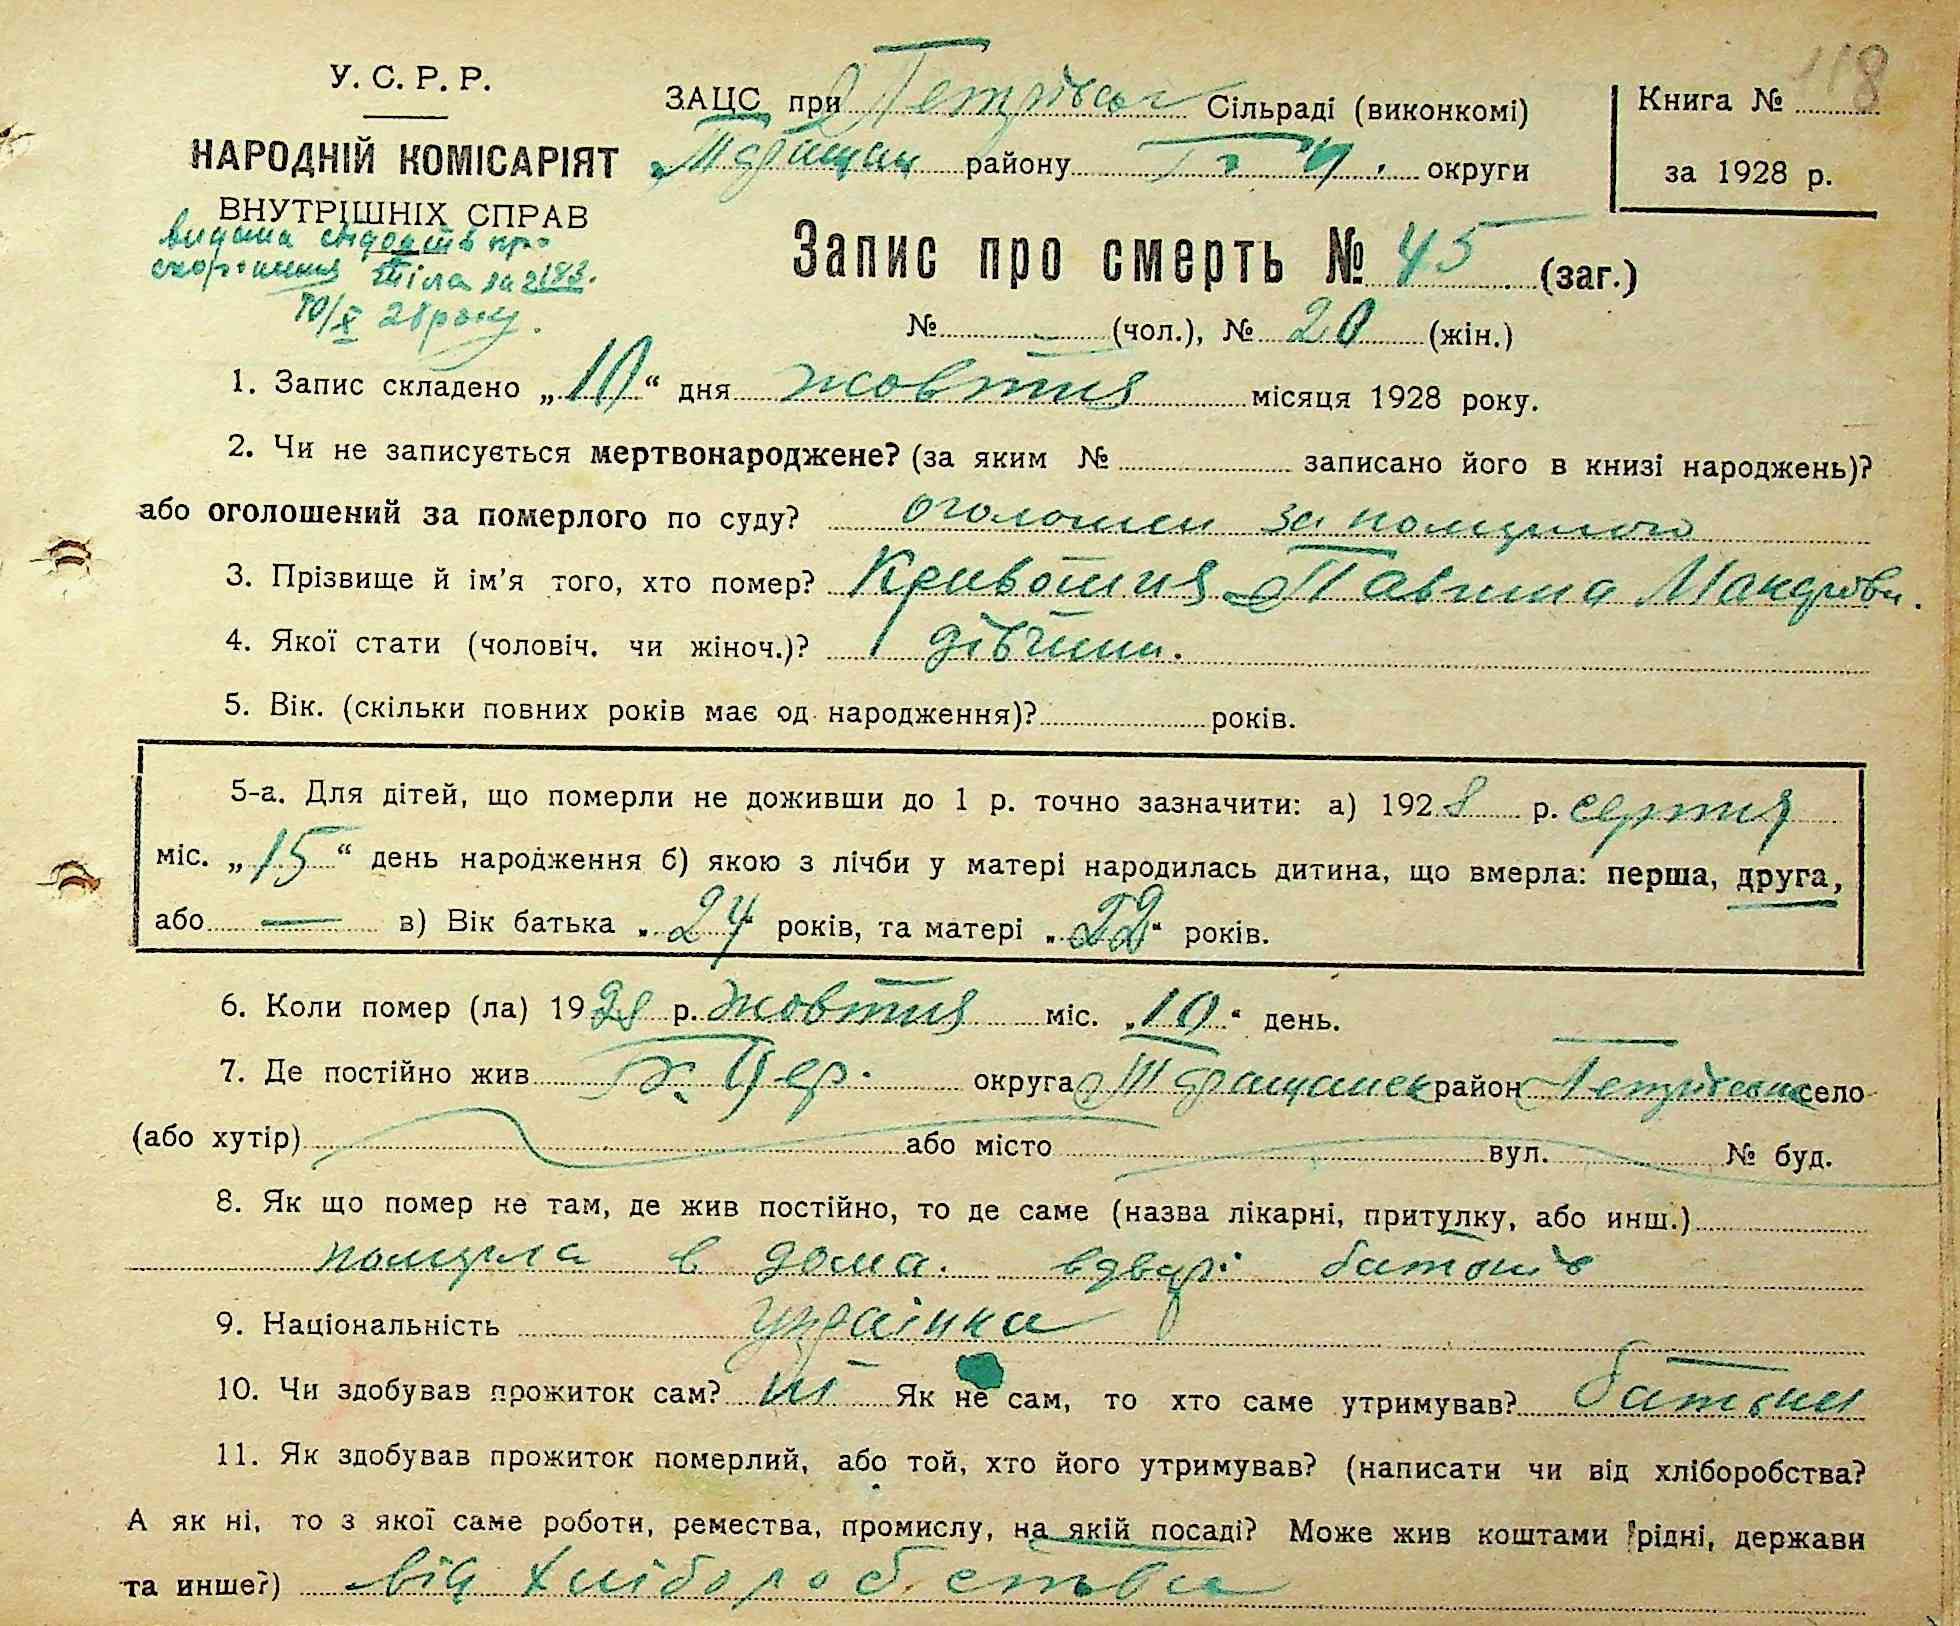 118
У. С. Р. Р.
НАРОДНІЙ КОМІСАРІЯТ
ВНУТРІШНІХ СПРАВ
видана свідоцтв про
скоронення тіла за 2183.
10/X 28 року.
ЗАЦС при Петрівськ Сільраді (виконкомі)
Таращан району Б Ц. округи
Книга №
за 1928 р.
Запис про смерть № 45 (заг.)
№ - (чол.), № 20 (жін.)
1. Запис складено „10“ дня жовтня місяця 1928 року.
2. Чи не записується мертвонароджене? (за яким № записано його в книзі народжень)?
або оголошений за померлого по суду? оголошен за померлого
3. Прізвище й ім’я того, хто помер? Кривошия Павлина Макарови.
4. Якої стати (чоловіч. чи жіноч.)? дівчина.
5. Вік. (скільки повних років має од народження)? років.
5-а. Для дітей, що померли не доживши до 1 р. точно зазначити: а) 1928 р. серпня
міс. „15“ день народження б) якою з лічби у матері народилась дитина, що вмерла: перша, друга,
або — в) Вік батька „24“ років, та матері „22“ років.
6. Коли помер (ла) 1928 р. жовтня міс. „10“ день.
7. Де постійно жив Б. Цер. округа Таращанськ район Петрівська село
(або хутір) або місто вул. № буд.
8. Як що помер не там, де жив постійно, то де саме (назва лікарні, притулку, або инш.)
померла в дома. вдворі батьків
9. Національність українка
10. Чи здобував прожиток сам? ні Як не сам, то хто саме утримував? батьки
11. Як здобував прожиток померлий, або той, хто його утримував? (написати чи від хліборобства?
А як ні, то з якої саме роботи, ремества, промислу, на якій посаді? Може жив коштами рідні, держави
та инше?) від хліборобства